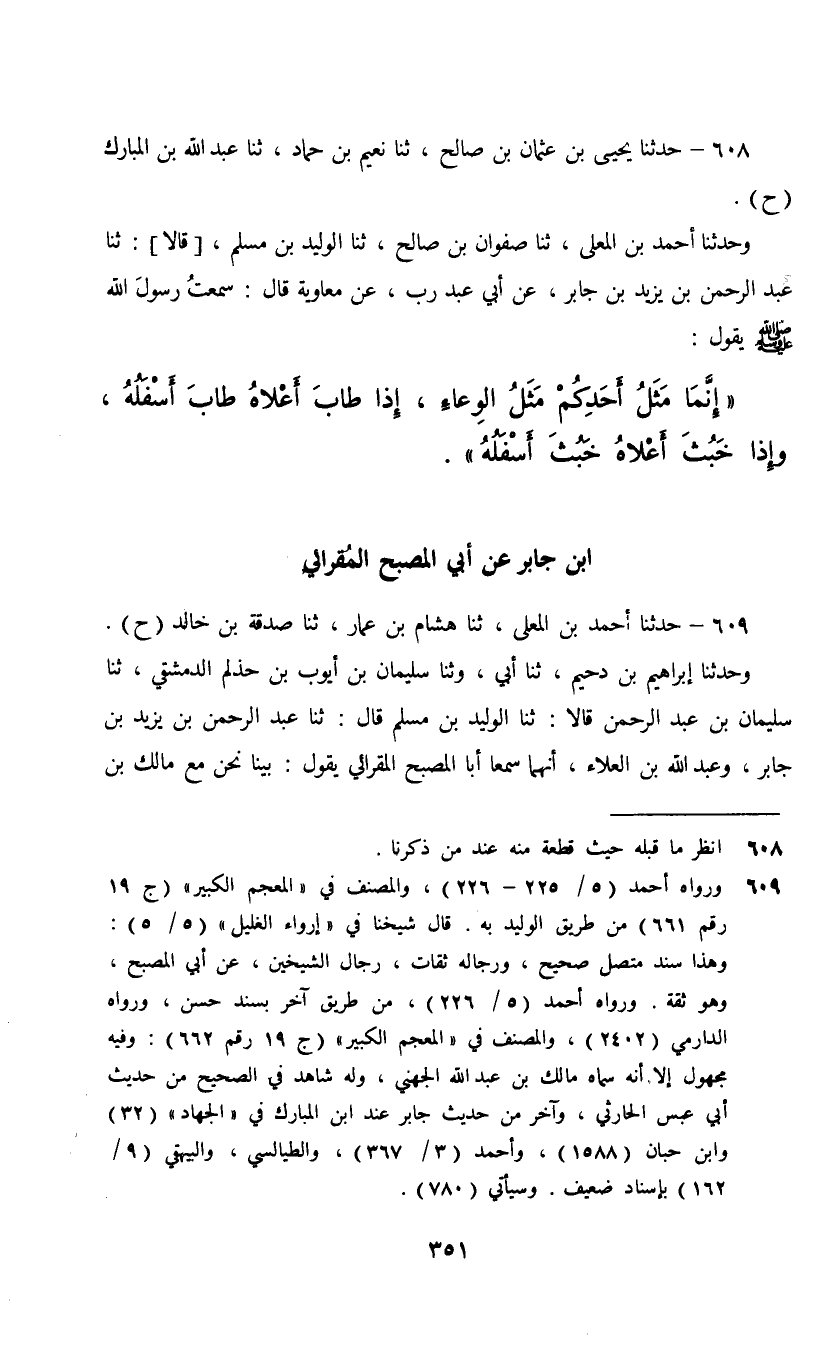 ٦٠٨ - حدثنا يحيى بن عثمان بن صالح ، ثنا نعيم بن حماد ، ثنا عبد الله بن المبارك
(ح) .
وحدثنا أحمد بن المعلى ، ثنا صفوان بن صالح ، ثنا الوليد بن مسلم ، [قالا] : ثنا
عبد الرحمن بن يزيد بن جابر ، عن أبي عبد رب ، عن معاوية قال : سمعتُ رسولَ الله
ﷺ يقول :
« إِنَّمَا مَثَلُ أَحَدِكُمْ مَثَلُ الوِعاءِ ، إِذا طابَ أَعْلاهُ طابَ أَسْفَلُهُ ،
وإِذا خَبُثَ أَعْلاهُ خَبُثَ أَسْفَلُهُ» .
ابن جابر عن أبي المصبح المُقرائي
٦٠٩ - حدثنا أحمد بن المعلى ، ثنا هشام بن عمار ، ثنا صدقة بن خالد (ح) .
وحدثنا إبراهيم بن دحيم ، ثنا أبي ، وثنا سليمان بن أيوب بن حذلم الدمشقي ، ثنا
سليمان بن عبد الرحمن قالا : ثنا الوليد بن مسلم قال : ثنا عبد الرحمن بن يزيد بن
جابر ، وعبد الله بن العلاء ، أنهما سمعا أبا المصبح المقرائي يقول : بينا نحن مع مالك بن
٦٠٨ انظر ما قبله حيث قطعة منه عند من ذكرنا .
٦٠٩ ورواه أحمد (٥/ ٢٢٥ - ٢٢٦) ، والمصنف في «المعجم الكبير» (ج ١٩
رقم ٦٦١) من طريق الوليد به . قال شيخنا في «إرواء الغليل» (٥/ ٥) :
وهذا سند متصل صحيح ، ورجاله ثقات ، رجال الشيخين ، عن أبي المصبح ،
وهو ثقة . ورواه أحمد (٥/ ٢٢٦) ، من طريق آخر بسند حسن ، ورواه
الدارمي (٢٤٠٢) ، والمصنف في «المعجم الكبير» (ج ١٩ رقم ٦٦٢) : وفيه
مجهول إلا أنه سماه مالك بن عبد الله الجهني ، وله شاهد في الصحيح من حديث
أبي عبس الحارثي ، وآخر من حديث جابر عند ابن المبارك في «الجهاد» (٣٢)
وابن حبان (١٥٨٨) ، وأحمد (٣/ ٣٦٧) ، والطيالسي ، والبيهقي (٩/
١٦٢) بإسناد ضعيف . وسيأتي (٧٨٠) .
٣٥١